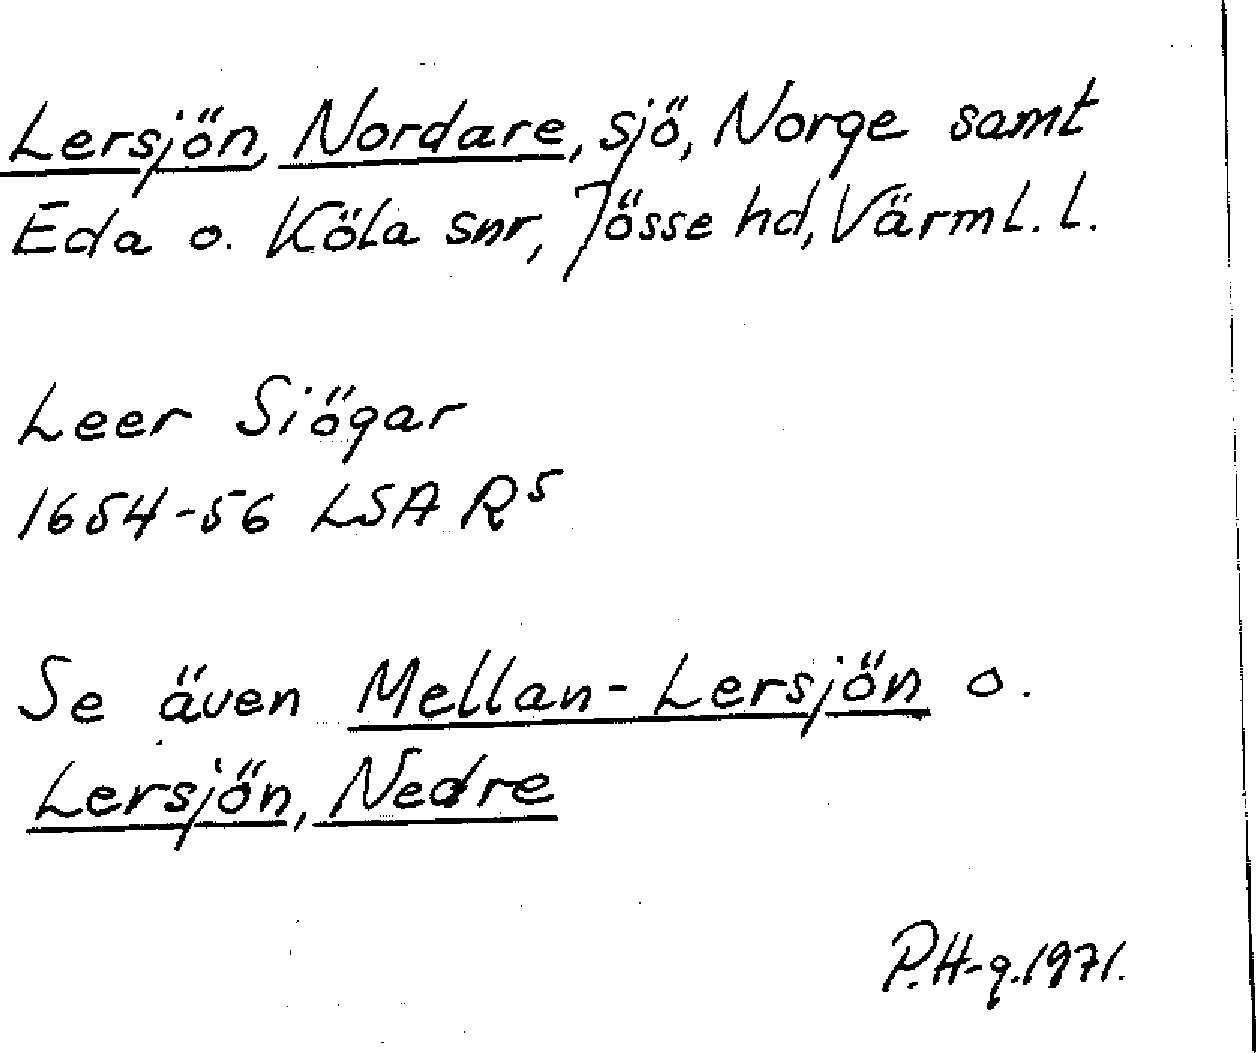 Lersjön, Nordare, sjö, Norge samt
Eda o. Köla snr, Jösse hd, Värml. l.
Leer Siögar
1654-56 LSA R5
Se även Mellan-Lersjön o.
Lersjön, Nedre
P.H-g.1971.